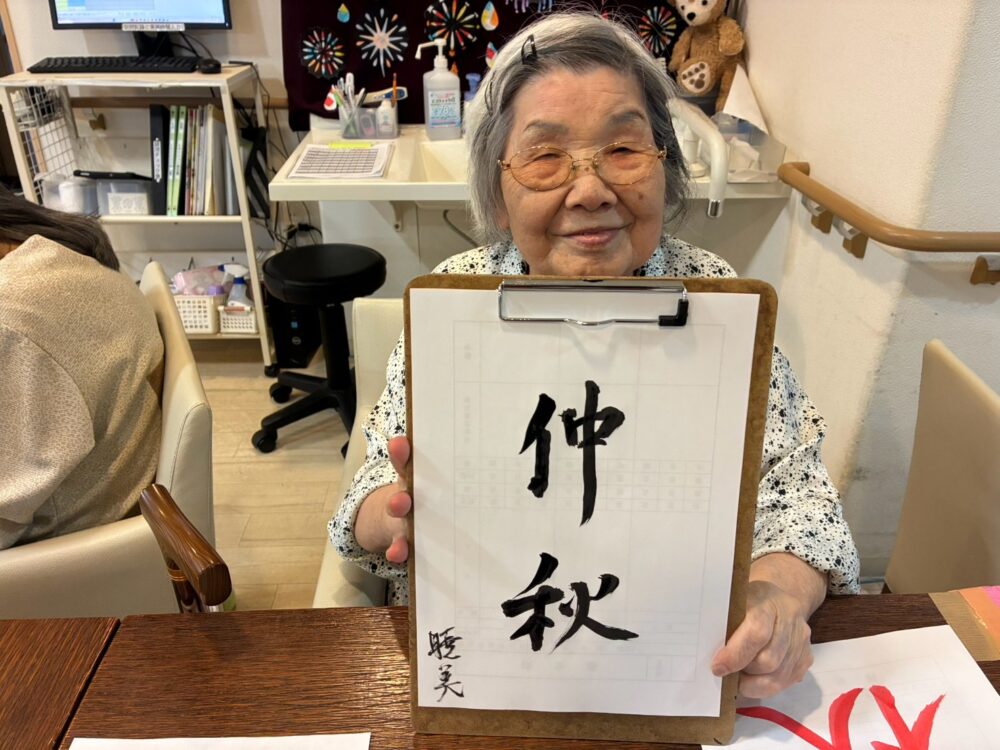 仲秋
暁美